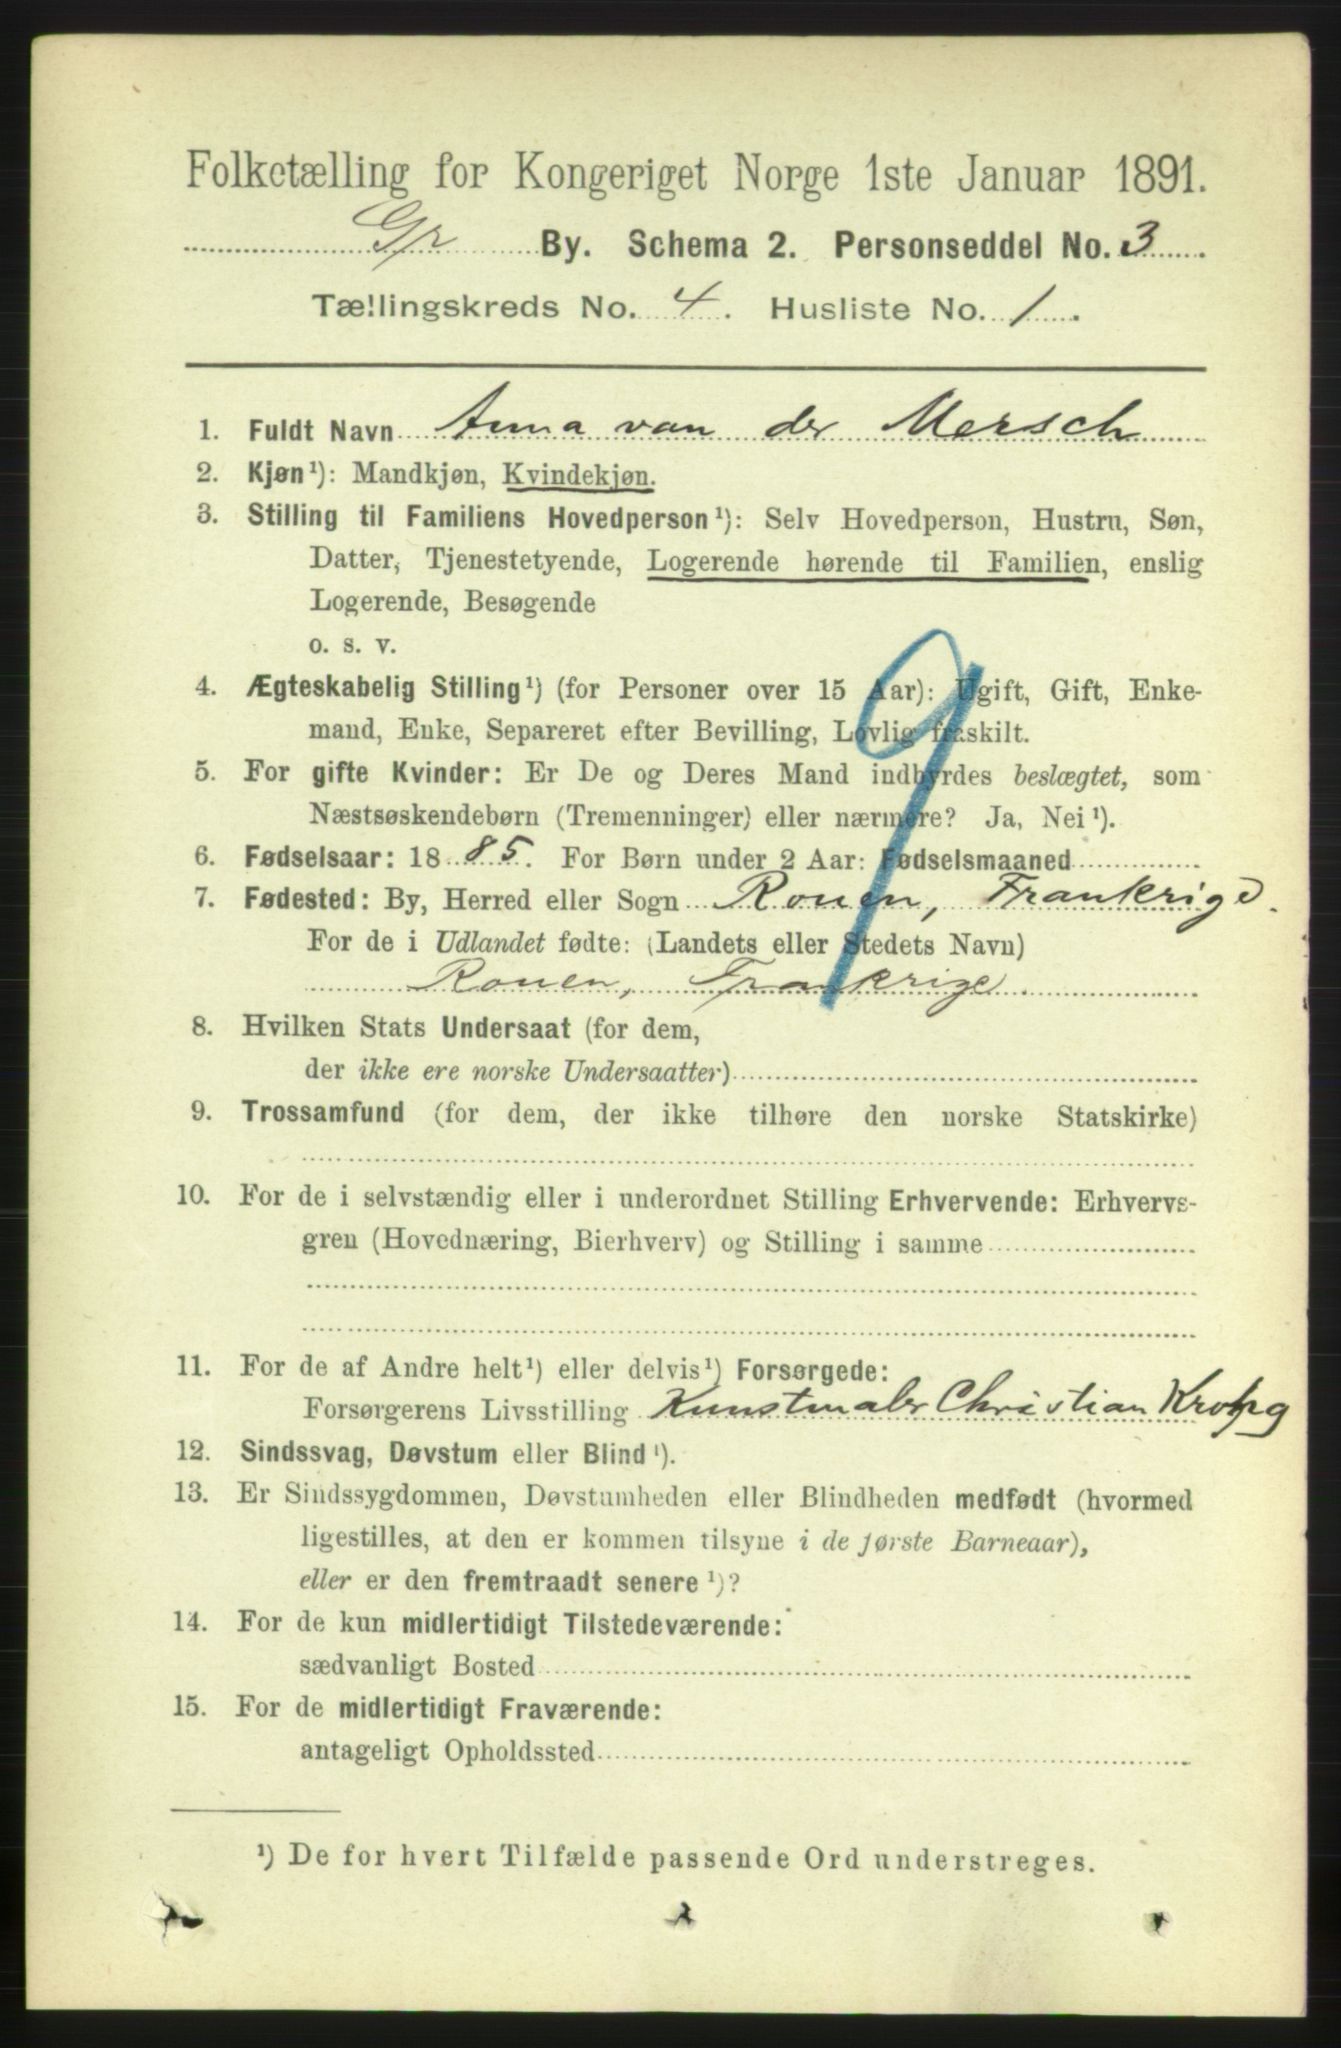 Folketælling for Kongeriget Norge 1ste Januar 1891.
Gr By. Schema 2. Personseddel No. 3
Tællingskreds No. 4. Husliste No. 1.
1. Fuldt Navn Anna van der Mersch
2. Kjøn¹): Mandkjøn, Kvindekjøn.
3. Stilling til Familiens Hovedperson¹): Selv Hovedperson, Hustru, Søn,
Datter, Tjenestetyende, Logerende hørende til Familien, enslig
Logerende, Besøgende
o. s. v.
4. Ægteskabelig Stilling¹) (for Personer over 15 Aar): Ugift, Gift, Enke-
mand, Enke, Separeret efter Bevilling, Lovlig fraskilt.
9
5. For gifte Kvinder: Er De og Deres Mand indbyrdes beslægtet, som
Næstsøskendebørn (Tremenninger) eller nærmere? Ja, Nei¹).
6. Fødselsaar: 1885. For Børn under 2 Aar: Fødselsmaaned
7. Fødested: By, Herred eller Sogn Rouen, Frankrige.
For de i Udlandet fødte: (Landets eller Stedets Navn)
Rouen, Frankrige.
8. Hvilken Stats Undersaat (for dem,
der ikke ere norske Undersaatter)
9. Trossamfund (for dem, der ikke tilhøre den norske Statskirke)
10. For de i selvstændig eller i underordnet Stilling Erhvervende: Erhvervs-
gren (Hovednæring, Bierhverv) og Stilling i samme
11. For de af Andre helt¹) eller delvis¹) Forsørgede:
Forsørgerens Livsstilling Kunstmaler Christian Krohg
12. Sindssvag, Døvstum eller Blind¹).
13. Er Sindssygdommen, Døvstumheden eller Blindheden medfødt (hvormed
ligestilles, at den er kommen tilsyne i de første Barneaar),
eller er den fremtraadt senere¹)?
14. For de kun midlertidigt Tilstedeværende:
sædvanligt Bosted
15. For de midlertidigt Fraværende:
antageligt Opholdssted
¹) De for hvert Tilfælde passende Ord understreges.